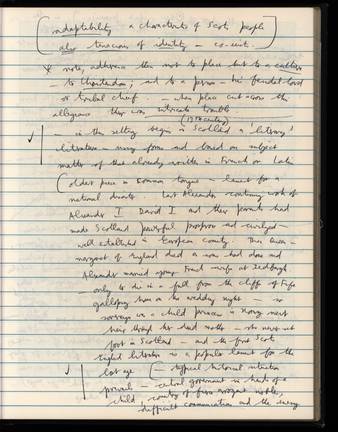 [ adaptability a characteristic of Scots people
also tenacious of identity – co-exist. ]
* note, address this not to place but to a culture
– to Christendom; and to a person – his feudal lord
or tribal chief. – when place cut across this
allegiance then came intricate trouble
(13th century)
– in this setting begins in Scotland a 'literary'
literature – many forms and based on subject
matter of that already written in French or Latin
(older piece in common tongue – lament for a
national disaster. Last Alexander continuing work of
Alexander I David I and their parents had
made Scotland peaceful prosperous and
well established in European comity. Then Queen –
Margaret of England died a son had done and
Alexander married young French wife at Jedburgh
– only to die in a fall from the cliffs of Fife
galloping home on the wedding night – no
survivors a child princess in Norway next
heir through her dead mother – she never set
foot in Scotland – and the first Scots
English literature is a popular lament for the
lost age. (– typical historical situation
prevails – central government in hands of a
child, country of fierce arrogant nobles,
difficult communication and the enemy